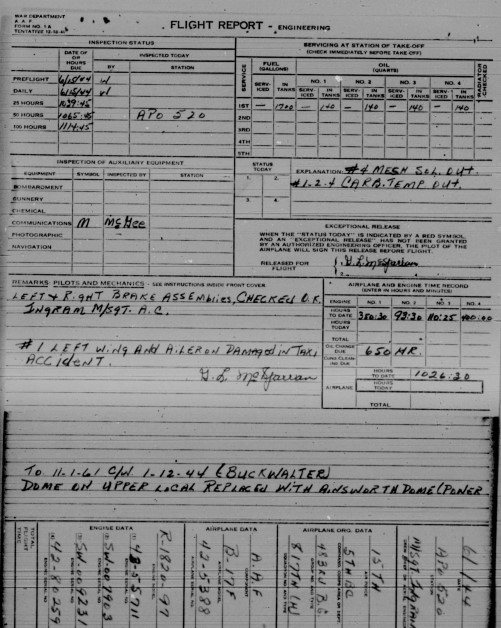 WAR DEPARTMENT
A. A. F.
FORM NO. 1A
FLIGHT REPORT - ENGINEERING
INSPECTION STATUS
DATE OF OR HOURS DUE
INSPECTED TODAY
BY
STATION
PREFLIGHT 6/15/44
DAILY 6/15/44
25 HOURS 1039:45
50 HOURS 1065:45 APO 520
100 HOURS 1114:45
SERVICING AT STATION OF TAKE-OFF
(CHECK IMMEDIATELY BEFORE TAKE OFF)
SERVICE
FUEL (GALLONS)
OIL (QUARTS)
RADIATOR CHECKED
NO. 1 NO. 2 NO. 3 NO. 4
SERVICED IN TANKS SERVICED IN TANKS SERVICED IN TANKS SERVICED IN TANKS SERVICED IN TANKS
1ST — 1700 — 140 — 140 — 140 — 140
2ND
3RD
4TH
5TH
INSPECTION OF AUXILIARY EQUIPMENT
EQUIPMENT SYMBOL INSPECTED BY STATION
BOMBARDMENT
GUNNERY
CHEMICAL
COMMUNICATIONS M McGee
PHOTOGRAPHIC
NAVIGATION
STATUS TODAY
1. 2.
3. 4.
EXPLANATION: #4 MESH SOL. OUT.
#1-2-4 CARB. TEMP OUT.
EXCEPTIONAL RELEASE
WHEN THE "STATUS TODAY" IS INDICATED BY A RED SYMBOL
AND AN "EXCEPTIONAL RELEASE" HAS NOT BEEN GRANTED
BY AN AUTHORIZED ENGINEERING OFFICER, THE PILOT OF THE
AIRPLANE WILL SIGN THIS RELEASE BEFORE FLIGHT.
RELEASED FOR FLIGHT
REMARKS: PILOTS AND MECHANICS - SEE INSTRUCTIONS INSIDE FRONT COVER
LEFT & RIGHT BRAKE ASSEMBLIES, CHECKED O.K.
INGRAM M/SGT. A.C.
#1 LEFT WING AND AILERON DAMAGED IN TAXI
ACCIDENT.
AIRPLANE AND ENGINE TIME RECORD
(ENTER IN HOURS AND MINUTES)
ENGINE NO. 1 NO. 2 NO. 3 NO. 4
HOURS TO DATE 350:30 93:30 110:25 400:00
HOURS TODAY
TOTAL
OIL CHANGE DUE 650 HR.
AIRPLANE
HOURS TO DATE 1026:20
HOURS TODAY
TOTAL
TO 11-1-61 C/W 1-12-44 (BUCKWALTER)
DOME ON UPPER LOCAL REPLACED WITH AINSWORTH DOME
TOTAL FLIGHT TIME
ENGINE DATA
(4) 42-80259
(3) SW-009231
(2) SW-007903
R-1820-97
AIRPLANE DATA
42-5388
B-17F
A.A.F
AIRPLANE ORG. DATA
483RD B.G
5TH BC
15TH
M/SGT. INGRAM
APO 520